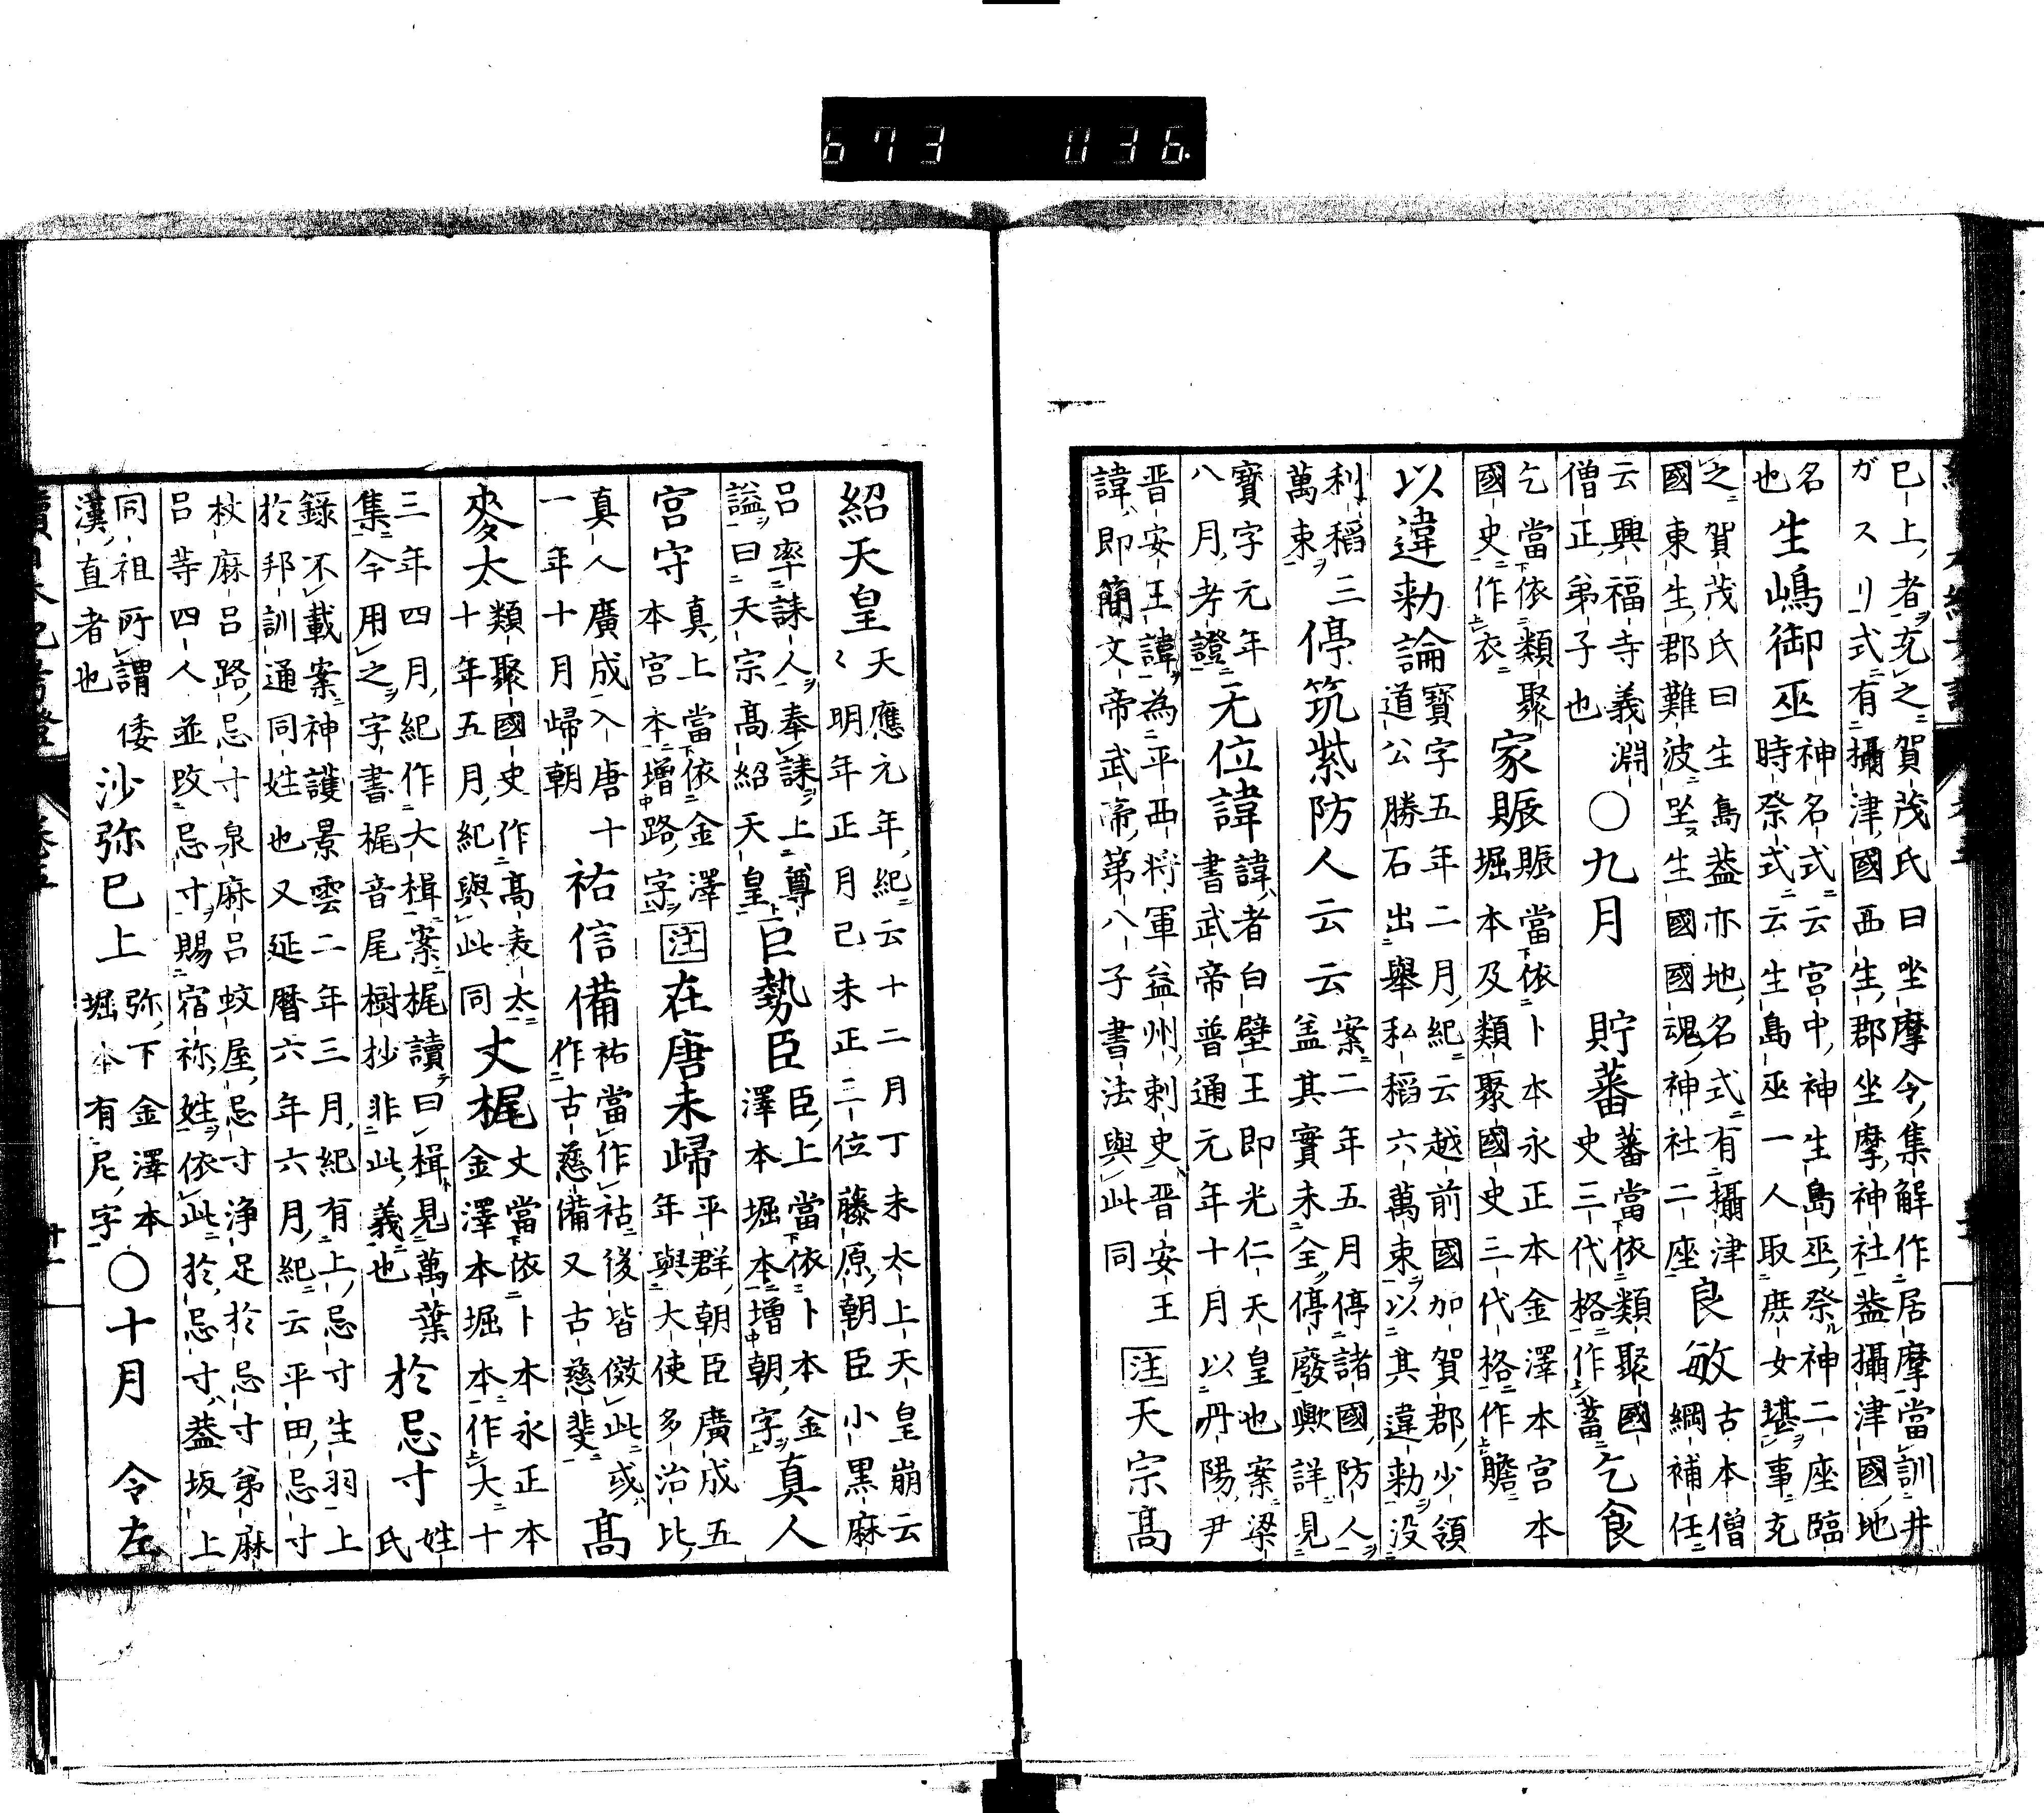 673 036
巳上者ヲ充之賀茂氏曰坐摩令集解作居摩當訓井
ガスリ式有攝津國西生郡坐摩神社蓋攝津國地
名
也
生嶋御巫
神名式云宮中神生島巫祭ル神二座臨
時祭式云生島巫一人取庶女堪ヲ事充
之賀茂氏曰生島蓋亦地名式有攝津
國東生郡難波坐ス生國國魂神社二座
良敏
古本僧
綱補任
云興福寺義淵
僧正弟子也
〇九月
貯蕃
蕃當依類聚國
史三代格作蓄
乞食
乞當依類聚
國史作衣
家賑
賑當依卜本永正本金澤本宮本
堀本及類聚國史三代格作贍
以違勅論
寶字五年二月紀云越前國加賀郡少領
道公勝石出擧私稻六萬束ヲ以其違勅ヲ没
利稻三
萬束ヲ
停筑紫防人云云
案二年五月停諸國防人ヲ
盖其實未全停廢歟詳見
寳字元年
八月考證
无位諱
諱ハ者白壁王即光仁天皇也案梁
書武帝普通元年十月以丹陽尹
晋安王諱ヲ為平西将軍益州刺史ハ晋安王
諱ハ即簡文帝武帝第八子書法與此同
注
天宗高
紹天皇
天應元年紀云十二月丁未太上天皇崩云
〻明年正月己未正二位藤原朝臣小黑麻
呂率誄人ヲ奉誄ヲ上尊
謚ヲ曰天宗高紹天皇
巨勢臣
臣上當依卜本金
澤本堀本増朝字ヲ
真人
宮守
真上當依金澤
本宮本増路字ヲ
注
在唐未歸
平群朝臣廣成五
年與大使多治比
真人廣成入唐十
一年十月歸朝
祐信備
祐當作祜後皆倣此或ハ
作古慈備又古慈斐
髙
麥太
類聚國史作髙表太
十年五月紀與此同
丈梶
丈當依卜本永正本
金澤本堀本作大十
三年四月紀作大楫案梶讀テ曰楫ト見萬葉
集今用之ヲ字書梶音尾樹抄非此義也
於忌寸
姓
氏
錄不載案神護景雲二年三月紀有上忌寸生羽上
於邦訓通同姓也又延暦六年六月紀云平田忌寸
杖麻呂路忌寸泉麻呂蚊屋忌寸浄足於忌寸弟麻
呂等四人並改忌寸ヲ賜宿祢姓ヲ依此於忌寸ハ蓋坂上
同祖所謂倭
漢直者也
沙弥巳上
弥下金澤本
堀本有尼字
〇十月
令左